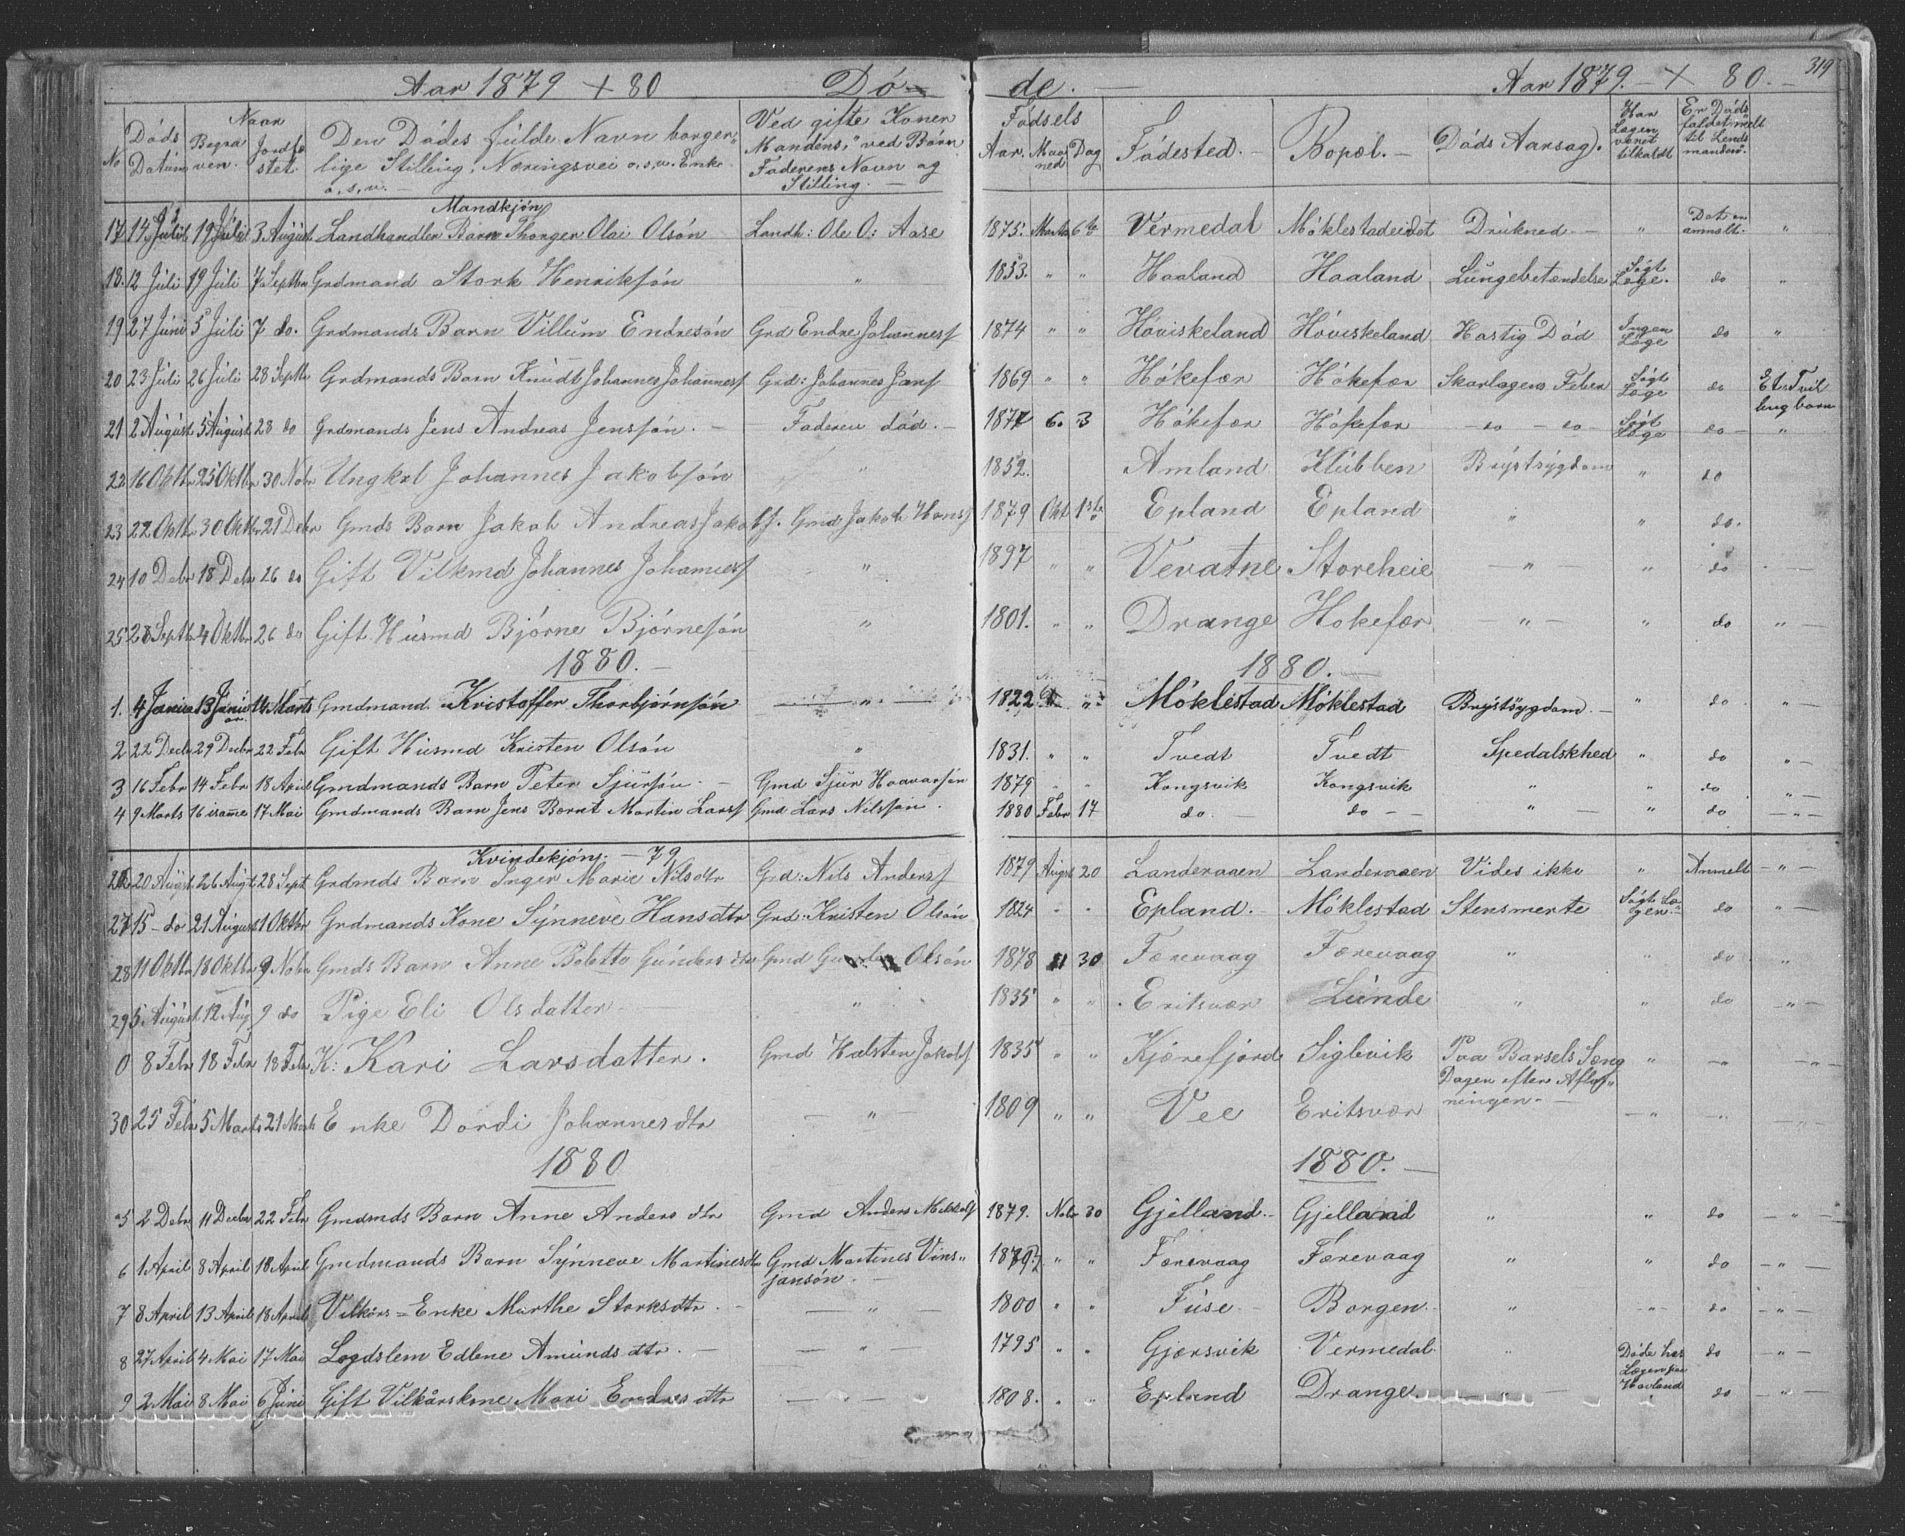 Aar 1879 + 80 Dö- de. — Aar 1879. — + 80. — 319
No Døds Datum Naar Begraven. Jordfæstet. Den Dödes fulde Navn borgerlige Stilling, Næringsvei o.s.v. Enke o.s.v. — Ved gifte Koner Mandens, ved Børn Faderens Navn og Stilling. — Fødsels Aar. Maaned Dag Födested. — Bopæl. — Döds Aarsag. Har Lægen været tilkaldt Er Dödsfaldet meldt til Lensmanden.
Mandkjön
17 14 Juli 19 Juli 3 August Landhandler Barn Thonger Olai Olsön Landh: Ole O: Aase 1875. Marts 6te Vermedal Möklestadeidet Drukned — " Dat en anmelt. "
18. 12 Juli 19 Juli 7 Septbr Grdmand Stork Henriksön " 1853. " " Haaland Haaland Lungebetændelse Søgt Læge. do "
19 27 Juni 5 Juli 7 do. Grdmands Barn Villum Endresön Grd Endre Johannes 1874 " " Höviskeland Höviskeland Hastig Död Ingen Læge do "
20 23 Juli 26 Juli 28 Septbr Grdmands Barn Knudt Johannes Johannes Grd: Johannes Jans 1869 " " Hökefær Hökefær Skarlagens Feber Søgt Læge do Et Tvillingbarn
21 2 August 5 August 28 do Grdmands Jens Andreas Jensön. — Faderen död. — 1877 6. 3 Hökefær Hökefær — do — do — Søgt Læge do — "
22 16 Oktbr 25 Oktbr 30 Nobr Ungkal Johannes Jakobsön " 1852. Amland Klubben Brystsygdom " do
23 22 Oktbr 30 Oktbr 21 Debr Gmds Barn Jakob Andreas Jakobs. Gmd Jakob Hans 1879 Okt 1ste Epland Epland " " do.
24 10 Debr 18 Debr 26 do Gift Vilkmd Johannes Johannes " 1897 " " Vevatne Storeheie — " — " do
25 28 Septbr 4 Oktbr 26 do Gift Husmd Björne Björnesön " 1801. " " Drange Hokefær — " — " do " —
1880. — 1880. —
1. 4 Januar 13 Januar 14 Marts Gmdmand Kristoffer Thorbjörnsön " 1822 " Möklestad Möklestad Brystsygdom. — " do "
2 22 Decbr 29 Decbr 22 Febr Gift Husmd Kristen Olsön " 1831. " " Tvedt Tvedt Spedalskhed " do " —
3 16 Febr 14 Febr 18 April Gmdmands Barn Peter Sjursön. — Gmd Sjur Haavarsön 1879 " " Kongsvik Kongsvik " " do " —
4 9 Marts 16 samme 17 Mai Gmdmands Barn Jens Bernt Martin Lars Gmd Lars Nilsson. 1880 Febr 17 do. — do — " — " do — " —
Kvindekjön. — 79
26 20 August 26 Augt 28 Sept Grdmds Barn Inger Marie Nilsdtr Grd: Nils Anders 1879 Augst 20 Landeraaen Landeraaen Vides ikke " Anmelt — " —
27 15 — do 21 August 1 Oktbr Grdmands Kone Synneve Hansdtr Grd: Kristen Olsön 1824 " " Epland. — Möklestad Stensmerte Søgt Lægen. do — " —
28 11 Oktbr 18 Oktbr 9 Nobr Gmds Barn Anne Bolette Gunders dtr Gmd Olsön 1878 11 30 Færevaag Færevaag " " do — " —
29 5 August 12 Aug 9 do Pige Eli Olsdatter " 1835 " " Eritsvær Lunde " " do — " —
0 8 Febr 18 Febr 18 Febr K: Kari Larsdatter. Gmd Halsten Jakobs 1835 " " Kjærefjord Siglevik Paa Barsels Seng Dagen efter Afløsningen. — " — " — — " —
30 25 Febr 5 Marts 21 Marts Enke Dordi Johannesdtr — " 1809 " " Vee Eritsvær — " — — " — — " —
1880 1880. —
5 2 Debr 11 Decbr 22 Febr Gmdmds Barn Anne Anders dtr Gmd Anders Mikkels 1879. Nobr 30 Gjelland. Gjelland " " do — " —
6 1 April 8 April 18 April Gmdmands Barn Synneve Martinesdtr Gmd Martines Vinsjansön. — 1879 " " Færevaag Færevaag " " do — " —
7 8 April 13 April 18 April Vilkårs = Enke Marthe Storksdtr. — — " 1800 " " Fuse — Borgen. " — " — do — " —
8 27 April 4 Mai 17 Mai Legdslem Edlene Amunds dtr. — — " 1795 " " Gjærsvik Vermedal " Döde hos Lægen paa Havland do — " —
9 2 Mai 8 Mai 6 Juni Gift Vilkårskone Mari Endres dtr — " — 1808. " " Epland Drange. — " — " do — " —